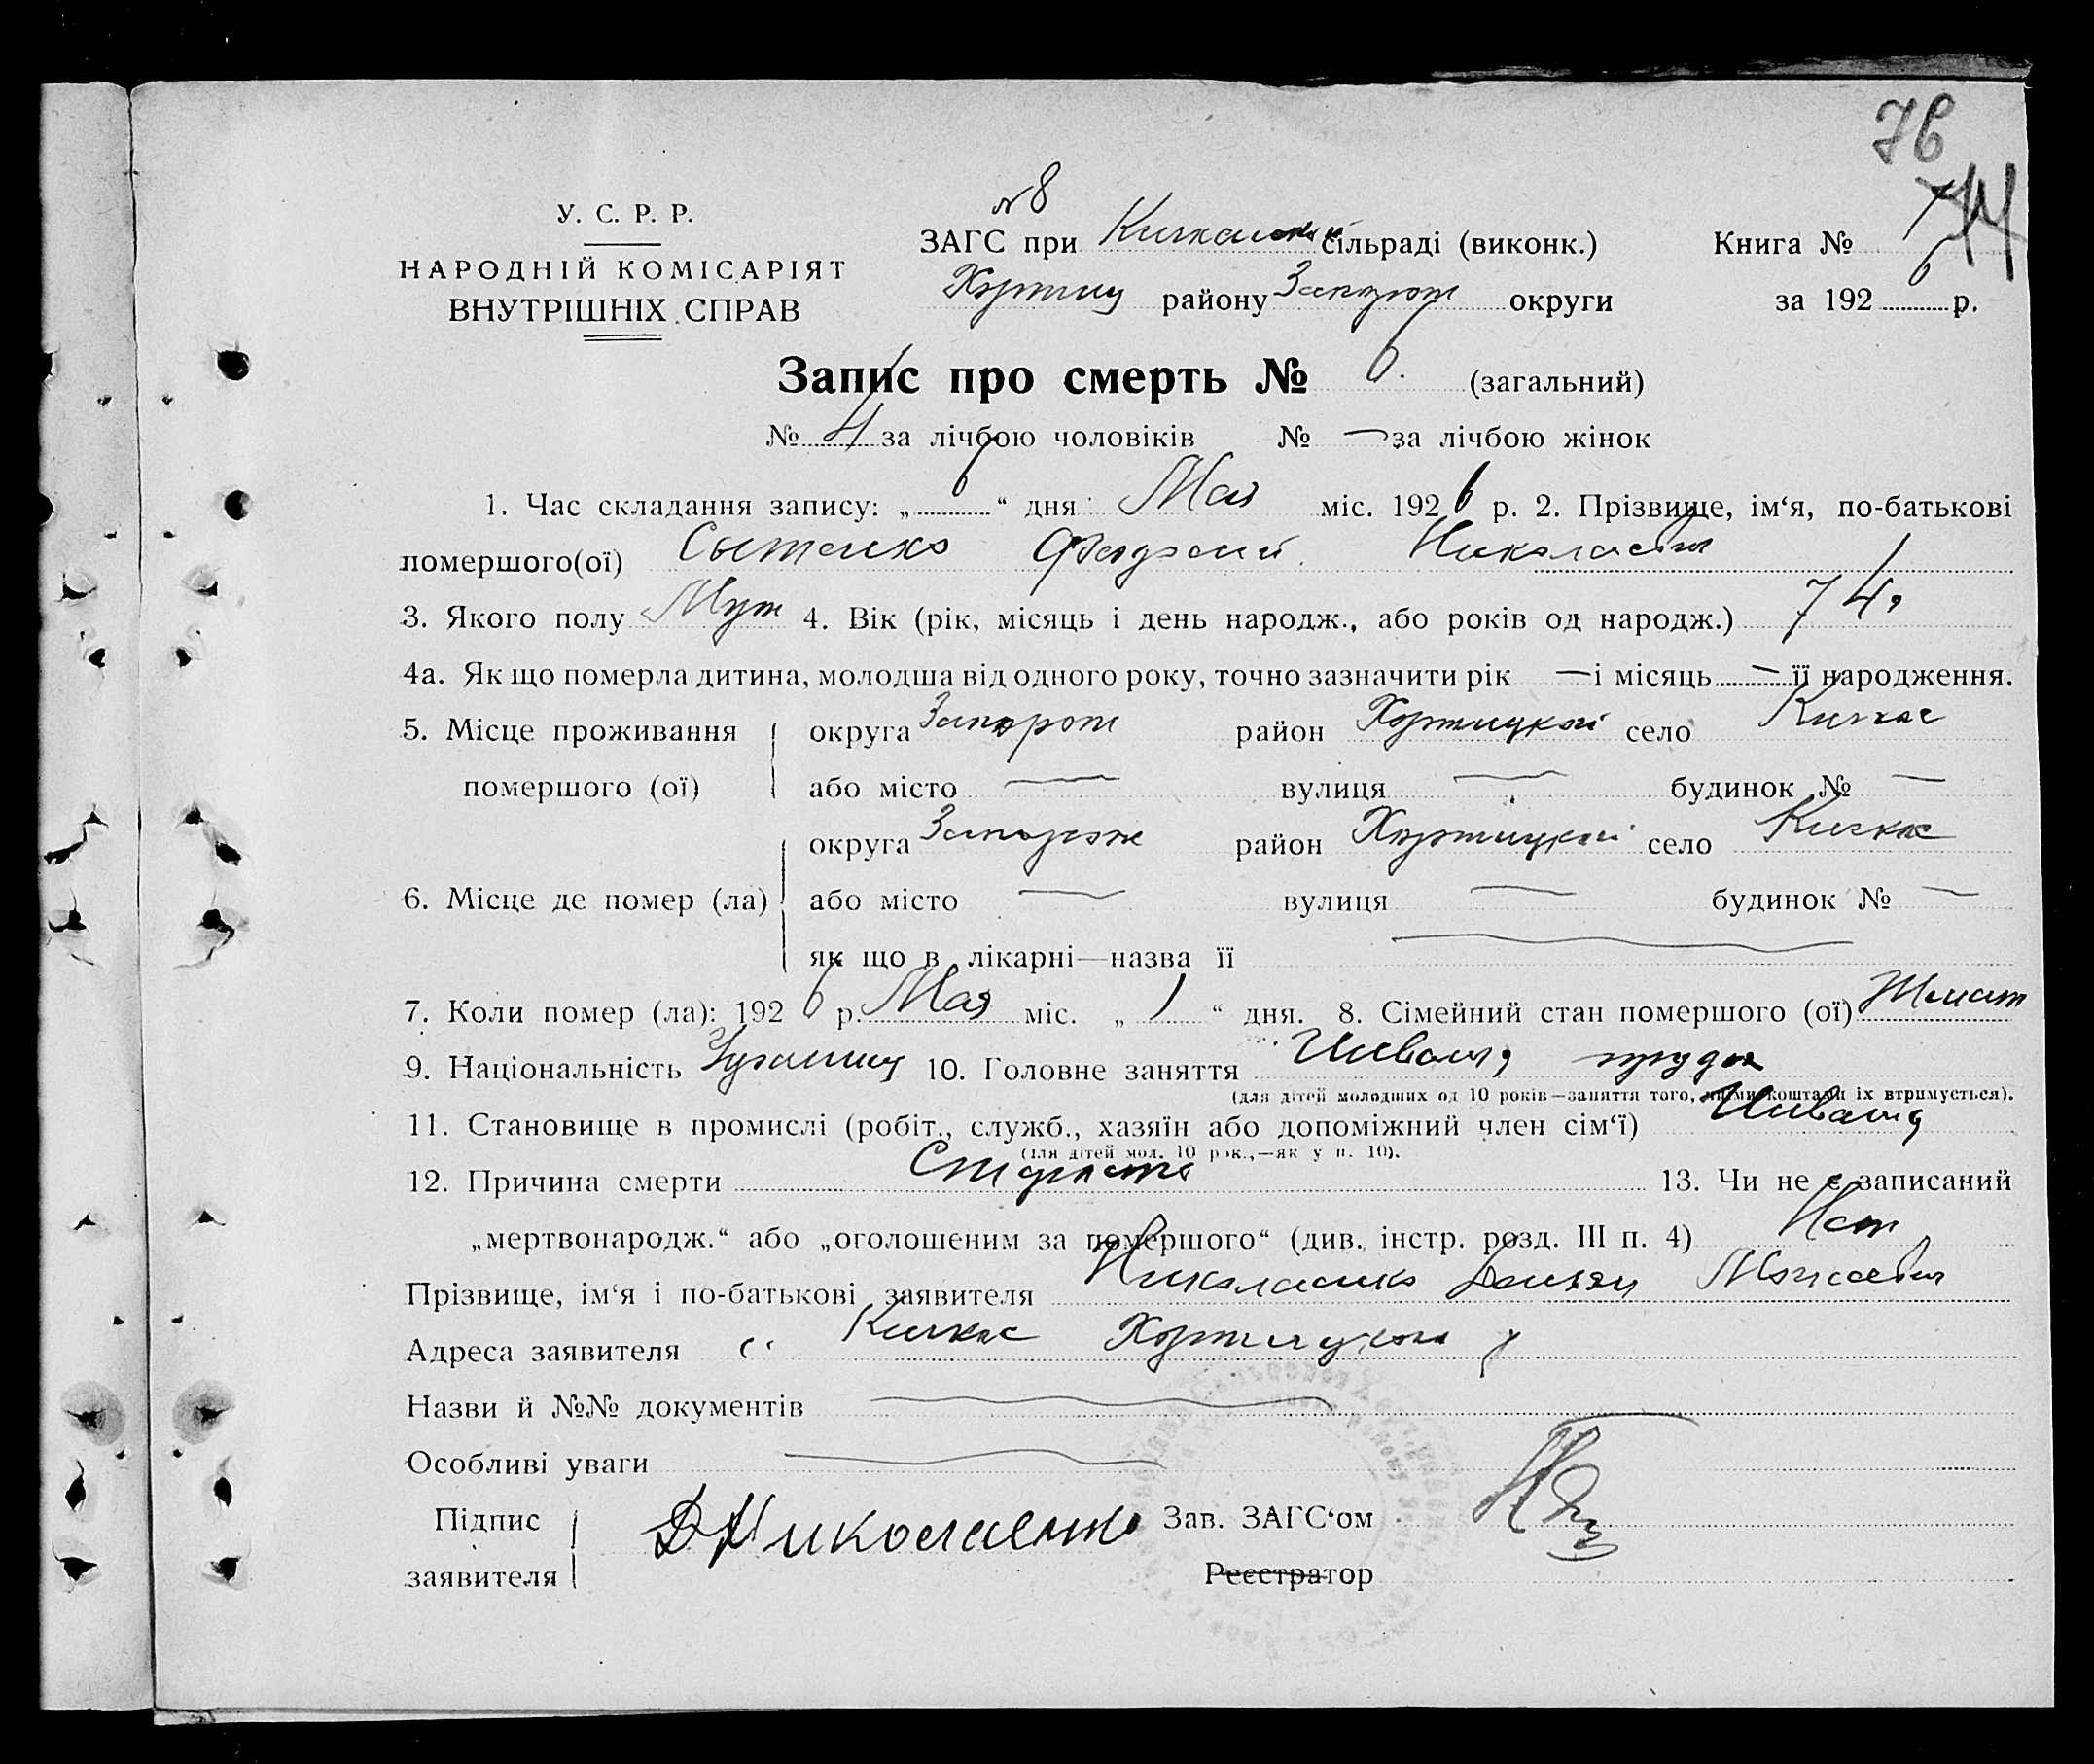 76
№ 8
У. С. Р. Р.
ЗАГС при сільраді (виконк.) Книга №
НАРОДНІЙ КОМІСАРІЯТ
ВНУТРІШНІХ СПРАВ
Хортиц району Запорож округи за 192 6 р.
Запис про смерть № 6. (загальний)
№ 4 за лічбою чоловіків № — за лічбою жінок
1. Час складання запису: „ 6 “ дня Мая міс. 192 6 р. 2. Прізвище, ім‘я, по-батькові
помершого(ої) Николаевич
3. Якого полу Муж 4. Вік (рік, місяць і день народж., або років од народж.) 74
4а. Як що померла дитина, молодша від одного року, точно зазначити рік — і місяць — її народження.
5. Місце проживання округа Запорож район Хортицкой село Кичкас
помершого (ої) або місто — вулиця — будинок № —
округа Запорож район Хортицкой село Кичкас
6. Місце де помер (ла) або місто — вулиця — будинок № —
як що в лікарні—назва її
7. Коли помер (ла): 192 6 р. Мая міс. „ 1 “ дня. 8. Сімейний стан помершого (ої) Женат
9. Національність 10. Головне заняття
(для дітей молодших од 10 років—заняття того, чиїми коштами їх втримується).
11. Становище в промислі (робіт., служб., хазяїн або допоміжний член сім‘ї)
(для дітей мол. 10 рок.,—як у п. 10).
12. Причина смерти Старость 13. Чи не є записаний
„мертвонародж.“ або „оголошеним за помершого“ (див. інстр. розд. III п. 4) Нет
Прізвище, ім‘я і по-батькові заявителя Николаенко
Адреса заявителя с. Кичкас Хортицкого р
Назви й №№ документів
Особливі уваги
Підпис Д Николаенко Зав. ЗАГС‘ом
заявителя Реєстратор